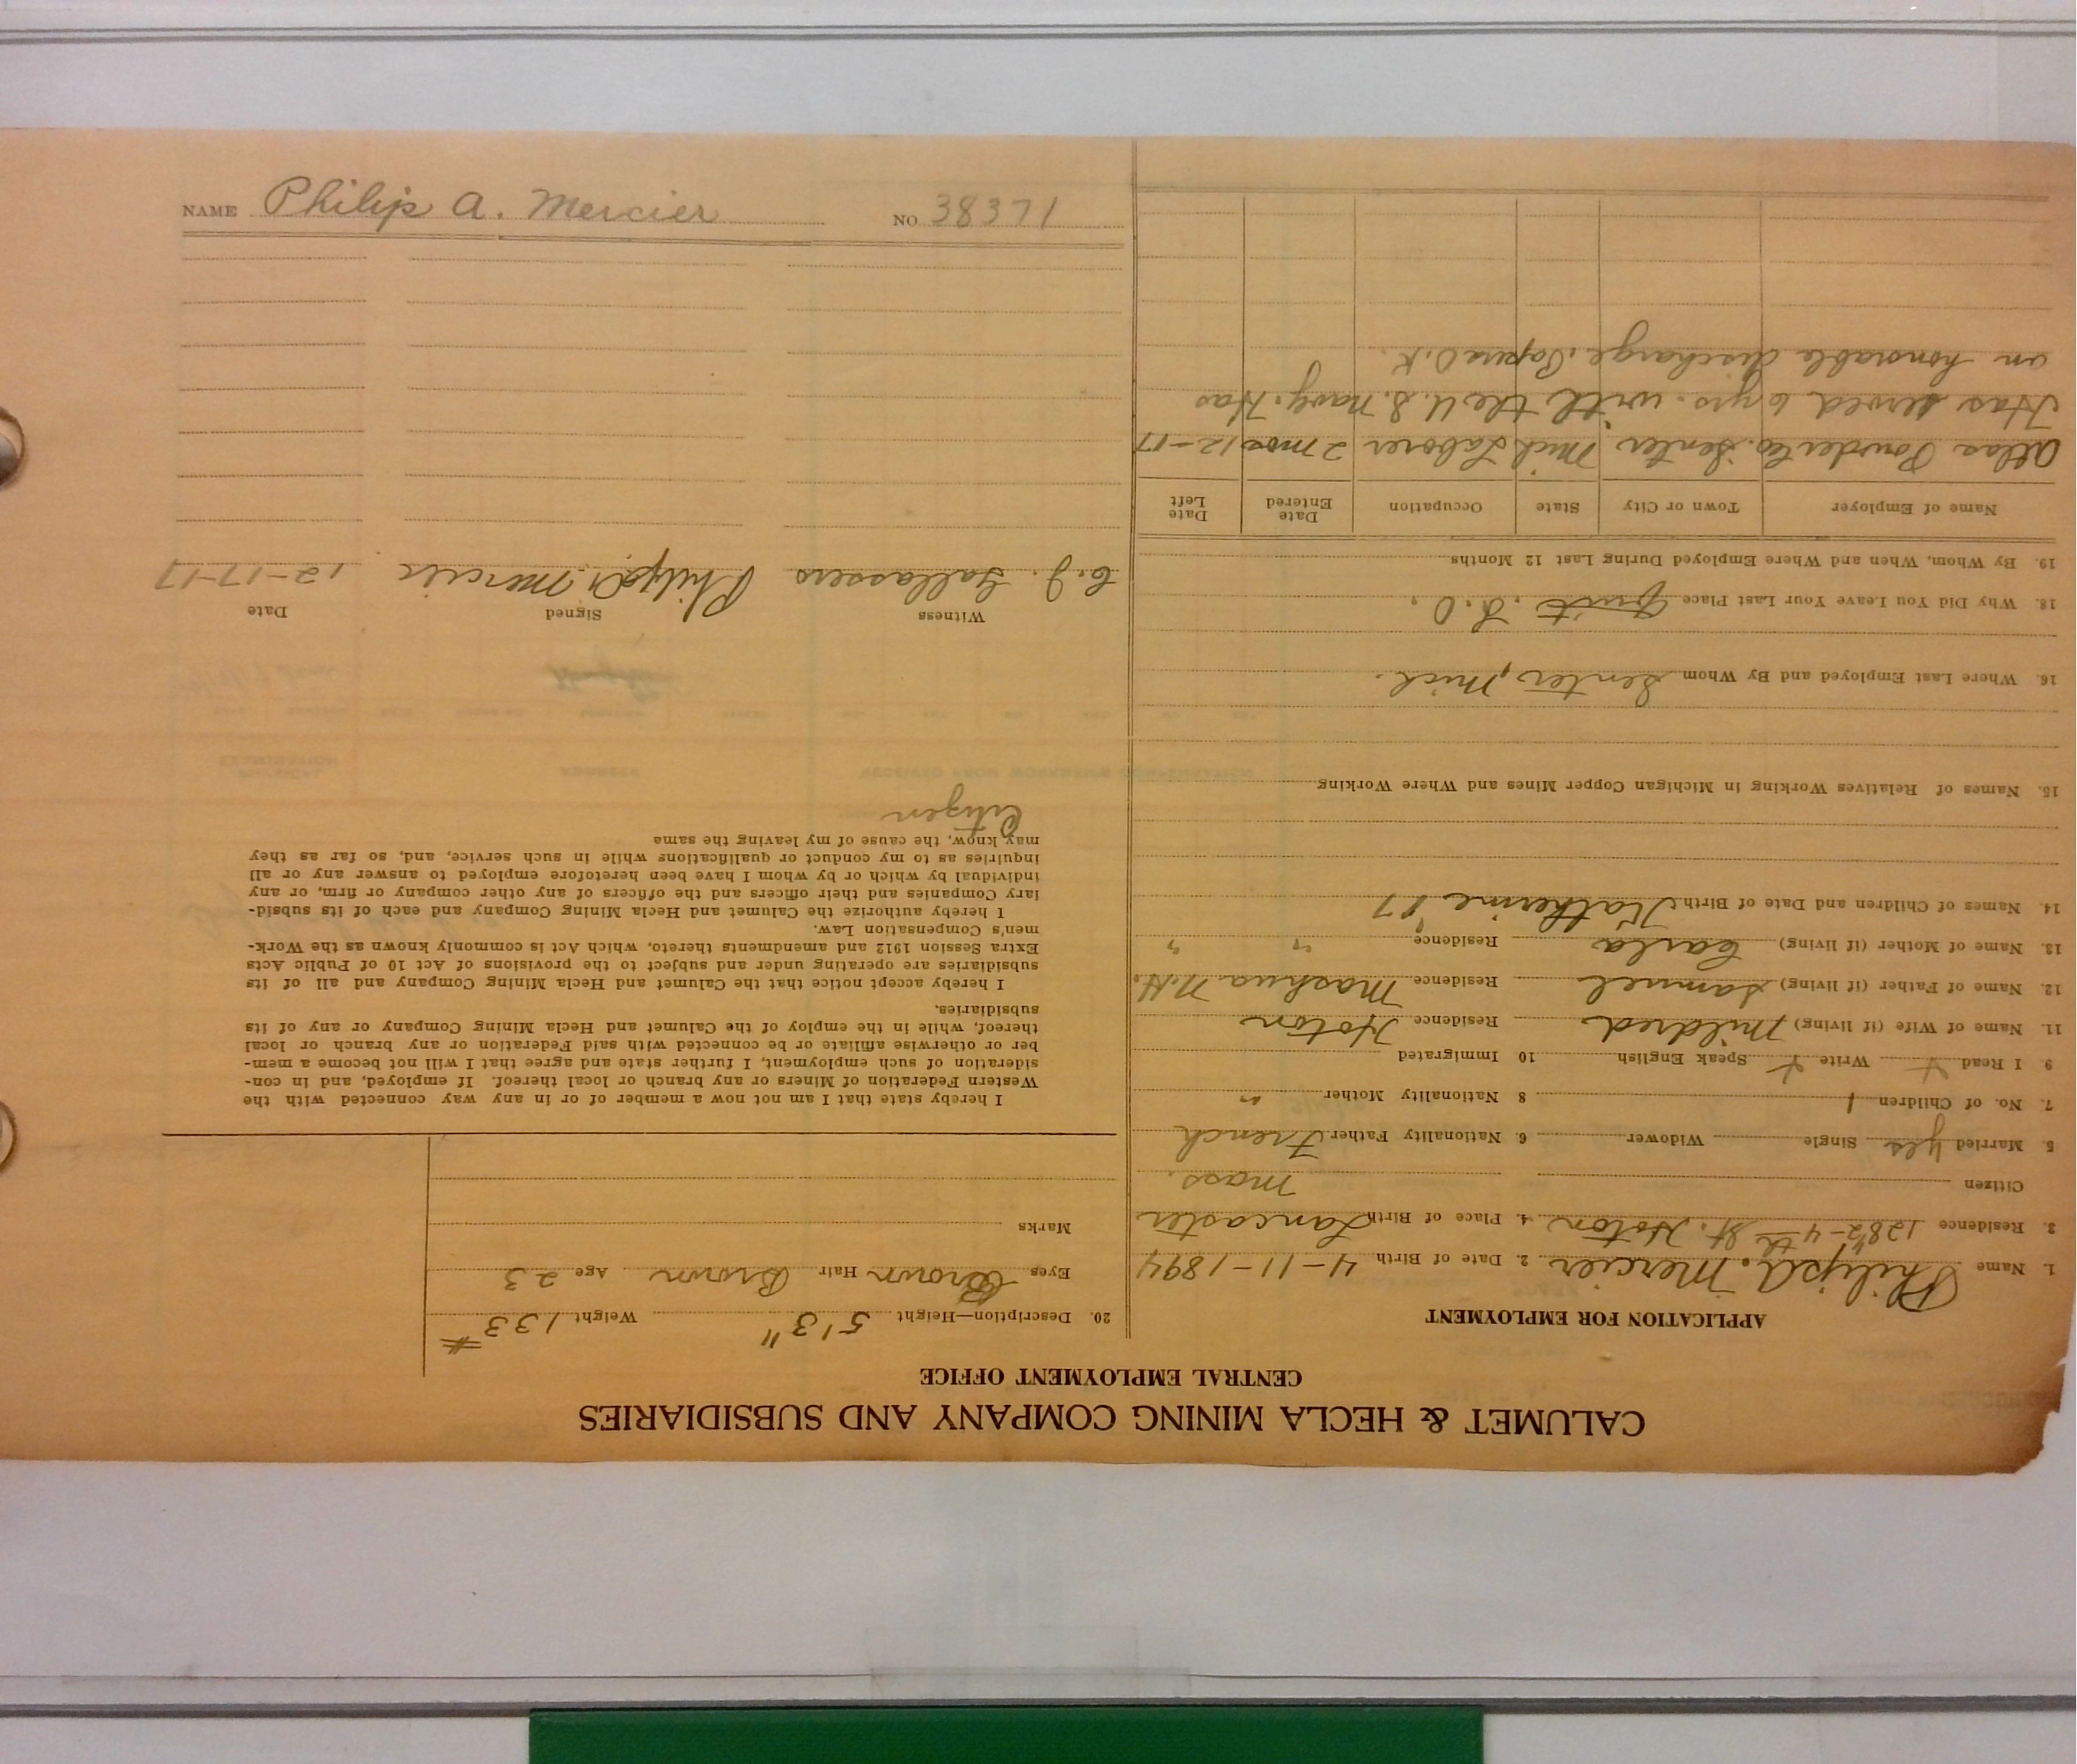 CALUMET & HECLA MINING COMPANY AND SUBSIDIARIES
CENTRAL EMPLOYMENT OFFICE
APPLICATION FOR EMPLOYMENT
1. Name Philip A. Mercier 2. Date of Birth 4-11-1894
3. Residence 128½-4th St. Hoton 4. Place of Birth Lancaster
Citizen Mass.
5. Married Yes Single Widower 6. Nationality Father French
7. No. of Children 1 8 Nationality Mother "
9 I Read + Write + Speak English 10 Immigrated
11. Name of Wife (if living) Mildred Residence Hoton
12. Name of Father (if living) Samuel Residence Mashua N.H.
13. Name of Mother (if living) Carla Residence " "
14. Names of Children and Date of Birth Katherine '17
15. Names of Relatives Working in Michigan Copper Mines and Where Working
16. Where Last Employed and By Whom Senter, Mich.
18. Why Did You Leave Your Last Place Quit. L.O.
19. By Whom, When and Where Employed During Last 12 Months
Name of Employer Town or City State Occupation Date Entered Date Left
Atlas Powder Co. Senter Mich Laborer 2 mos 12-17
Has served 6 yrs. with the U.S. Navy. Has
an honorable discharge. Papers O.K.
20. Description—Height 5'3" Weight 133#
Eyes Brown Hair Brown Age 23
Marks
I hereby state that I am not now a member of or in any way connected with the
Western Federation of Miners or any branch or local thereof. If employed, and in con-
sideration of such employment, I further state and agree that I will not become a mem-
ber or otherwise affiliate or be connected with said Federation or any branch or local
thereof, while in the employ of the Calumet and Hecla Mining Company or any of its
subsidiaries.
I hereby accept notice that the Calumet and Hecla Mining Company and all of its
subsidiaries are operating under and subject to the provisions of Act 10 of Public Acts
Extra Session 1912 and amendments thereto, which Act is commonly known as the Work-
men's Compensation Law.
I hereby authorize the Calumet and Hecla Mining Company and each of its subsid-
iary Companies and their officers and the officers of any other company or firm, or any
individual by which or by whom I have been heretofore employed to answer any or all
inquiries as to my conduct or qualifications while in such service, and, so far as they
may know, the cause of my leaving the same
Citizen
Witness Signed Date
C. J. Gallassero Philip A. Mercier 12-17-17
NAME Philip A. Mercier NO 38371